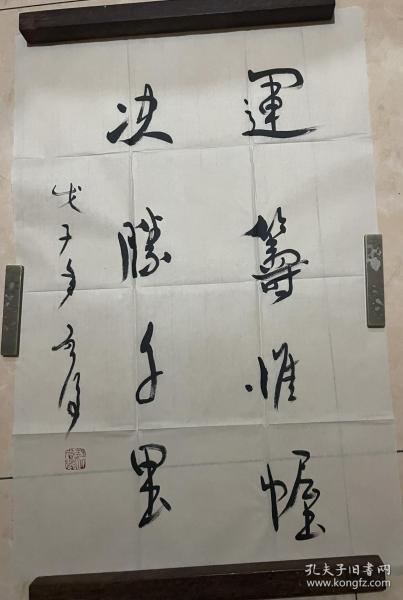 運籌惟幄
决勝千里
戊子冬
孔夫子旧书网
www.kongfz.com